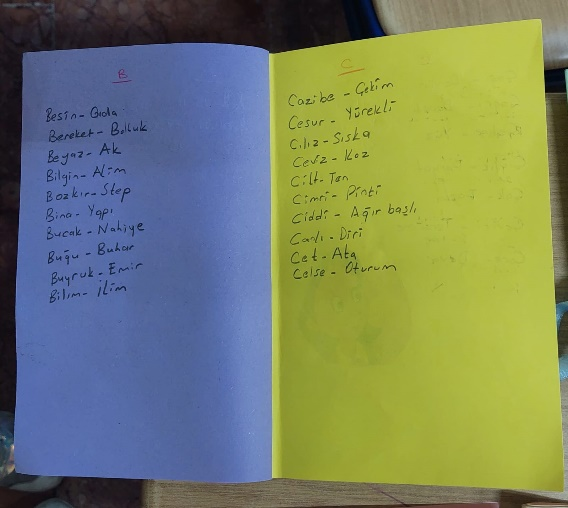 B
Besin - Gıda
Bereket - Bolluk
Beyaz - Ak
Bilgin - Alim
Bozkır - Step
Bina - Yapı
Bucak - Nahiye
Buğu - Buhar
Buyruk - Emir
Bilim - İlim
C
Cazibe - Çekim
Cesur - Yürekli
Cılız - Sıska
Ceviz - Koz
Cilt - Ten
Cimri - Pinti
Ciddi - Ağır başlı
Canlı - Diri
Cet - Ata
Celse - Oturum